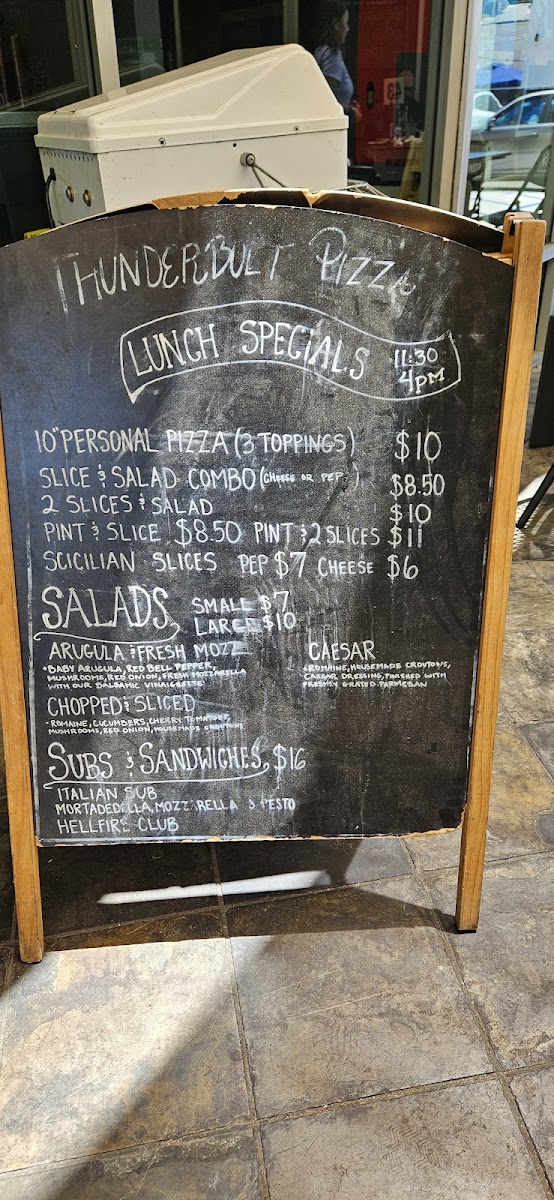 THUNDERBOLT PIZZA
LUNCH SPECIALS 11:30
4PM
10" PERSONAL PIZZA (3 TOPPINGS) $10
SLICE & SALAD COMBO (CHEESE OR PEP) $8.50
2 SLICES & SALAD $10
PINT & SLICE $8.50 PINT & 2 SLICES $11
SCICILIAN SLICES PEP $7 CHEESE $6
SALADS SMALL $7
LARGE $10
ARUGULA & FRESH MOZZ
• BABY ARUGULA, RED BELL PEPPER,
MUSHROOMS, RED ONION, FRESH MOZZARELLA
WITH OUR BALSAMIC VINAIGRETTE
CAESAR
• ROMAINE, HOUSEMADE CROUTONS,
CAESAR DRESSING, FINISHED WITH
FRESHLY GRATED PARMESAN
CHOPPED & SLICED
• ROMAINE, CUCUMBERS, CHERRY TOMATOES,
MUSHROOMS, RED ONION, HOUSEMADE CROUTONS
SUBS & SANDWICHES, $16
ITALIAN SUB
MORTADEDELLA, MOZZARELLA & PESTO
HELLFIRE CLUB